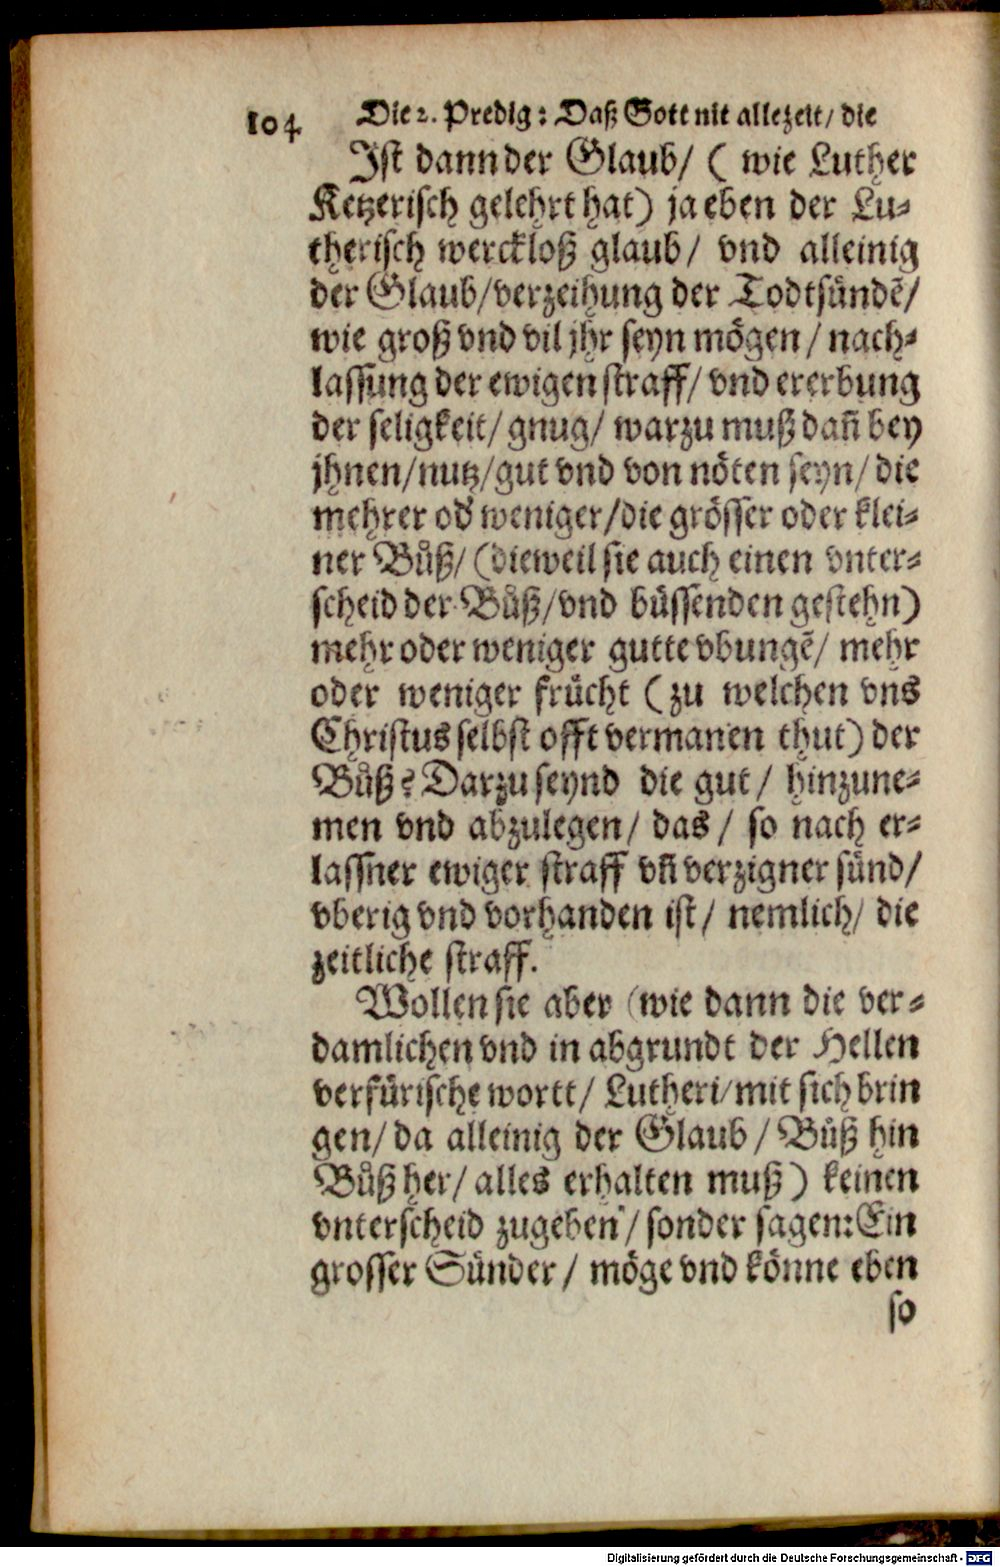 104 Die 2. Predig: Daß Gott nit allezeit/ die
Ist dann der Glaub/ ( wie Luther
Ketzerisch gelehrt hat) ja eben der Lu-
therisch werckloß glaub/ vnd alleinig
der Glaub/verzeihung der Todtsündẽ/
wie groß vnd vil jhr seyn mögen/ nach-
lassung der ewigen straff/ vnd ererbung
der seligkeit/ gnug/ warzu muß dañ bey
jhnen/nutz/gut vnd von nöten seyn/ die
mehrer od' weniger/die grösser oder klei-
ner Bůß/ (dieweil sie auch einen vnter-
scheid der Bůß/vnd büssenden gestehn)
mehr oder weniger gutte vbungẽ/ mehr
oder weniger frücht ( zu welchen vns
Christus selbst offt vermanen thut) der
Bůß? Darzu seynd die gut/ hinzune-
men vnd abzulegen/ das/ so nach er-
lassner ewiger straff vñ verzigner sünd/
vberig vnd vorhanden ist/ nemlich/ die
zeitliche straff.
Wollen sie aber (wie dann die ver-
damlichen vnd in abgrundt der Hellen
verfürische wortt/ Lutheri/mit sich brin
gen/ da alleinig der Glaub/ Bůß hin
Bůß her/ alles erhalten muß) keinen
vnterscheid zugeben/ sonder sagen: Ein
grosser Sünder/ möge vnd könne eben
so
Digitalisierung gefördert durch die Deutsche Forschungsgemeinschaft - DFG